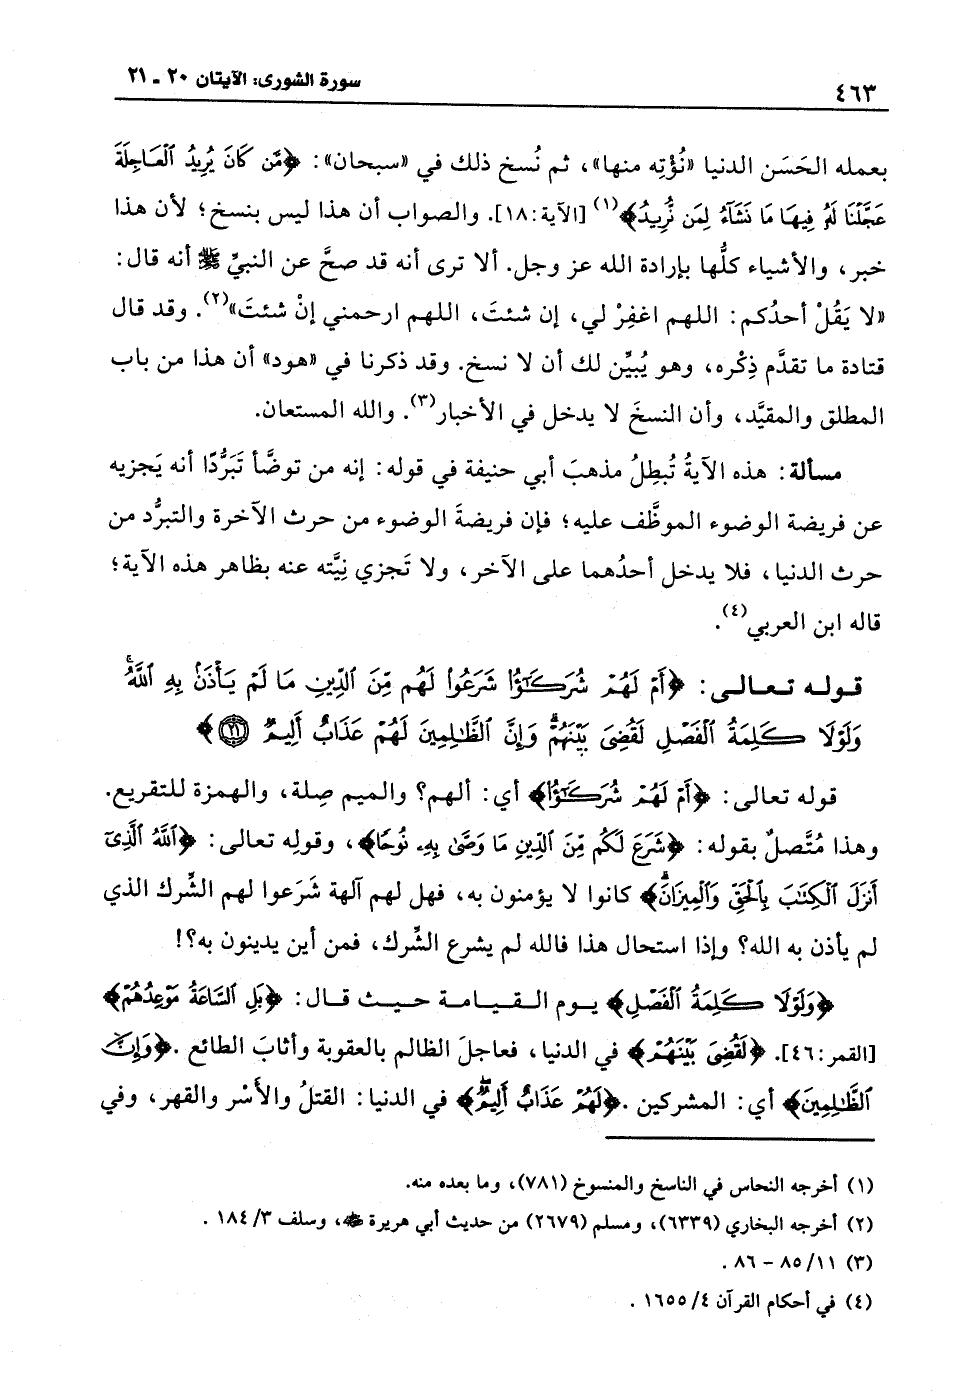 ٤٦٣
سورة الشورى: الآيتان ٢٠ ـ ٢١
بعمله الحَسَن الدنيا «نُؤْتِه منها»، ثم نُسخ ذلك في «سبحان»: ﴿مَّن كَانَ يُرِيدُ الْعَاجِلَةَ
عَجَّلْنَا لَهُ فِيهَا مَا نَشَآءُ لِمَن نُّرِيدُ﴾(١) [الآية:١٨]. والصواب أن هذا ليس بنسخ؛ لأن هذا
خبر، والأشياء كلُّها بإرادة الله عز وجل. ألا ترى أنه قد صحَّ عن النبيِّ ﷺ أنه قال:
«لا يَقُلْ أحدُكم: اللهم اغفِرْ لي، إن شئتَ، اللهم ارحمني إنْ شئتَ»(٢). وقد قال
قتادة ما تقدَّم ذِكْره، وهو يُبيِّن لك أن لا نسخ. وقد ذكرنا في «هود» أن هذا من باب
المطلق والمقيَّد، وأن النسخَ لا يدخل في الأخبار(٣). والله المستعان.
مسألة: هذه الآيةُ تُبطِلُ مذهبَ أبي حنيفة في قوله: إنه من توضَّأ تَبَرُّدًا أنه يَجزيه
عن فريضة الوضوء الموظَّف عليه؛ فإن فريضةَ الوضوء من حرث الآخرة والتبرُّد من
حرث الدنيا، فلا يدخل أحدُهما على الآخر، ولا تَجزي نِيَّته عنه بظاهر هذه الآية؛
قاله ابن العربي(٤).
قوله تعالى: ﴿أَمْ لَهُمْ شُرَكَٰٓؤُا۟ شَرَعُوا۟ لَهُم مِّنَ ٱلدِّينِ مَا لَمْ يَأْذَنۢ بِهِ ٱللَّهُ ۚ
وَلَوْلَا كَلِمَةُ ٱلْفَصْلِ لَقُضِىَ بَيْنَهُمْ ۗ وَإِنَّ ٱلظَّٰلِمِينَ لَهُمْ عَذَابٌ أَلِيمٌ ۝٢١﴾
قوله تعالى: ﴿أَمْ لَهُمْ شُرَكَٰٓؤُا۟﴾ أي: ألهم؟ والميم صِلة، والهمزة للتقريع.
وهذا مُتَّصلٌ بقوله: ﴿شَرَعَ لَكُم مِّنَ ٱلدِّينِ مَا وَصَّىٰ بِهِۦ نُوحًا﴾، وقولِه تعالى: ﴿ٱللَّهُ ٱلَّذِىٓ
أَنزَلَ ٱلْكِتَٰبَ بِٱلْحَقِّ وَٱلْمِيزَانَ ۗ﴾ كانوا لا يؤمنون به، فهل لهم آلهة شَرَعوا لهم الشِّرك الذي
لم يأذن به الله؟ وإذا استحال هذا فالله لم يشرع الشِّرك، فمن أين يدينون به؟!
﴿وَلَوْلَا كَلِمَةُ ٱلْفَصْلِ﴾ يوم القيامة حيث قال: ﴿بَلِ ٱلسَّاعَةُ مَوْعِدُهُمْ﴾
[القمر:٤٦]. ﴿لَقُضِىَ بَيْنَهُمْ﴾ في الدنيا، فعاجلَ الظالم بالعقوبة وأثابَ الطائع. ﴿وَإِنَّ
ٱلظَّٰلِمِينَ﴾ أي: المشركين. ﴿لَهُمْ عَذَابٌ أَلِيمٌ ۖ﴾ في الدنيا: القتلُ والأَسْر والقهر، وفي
(١) أخرجه النحاس في الناسخ والمنسوخ (٧٨١)، وما بعده منه.
(٢) أخرجه البخاري (٦٣٣٩)، ومسلم (٢٦٧٩) من حديث أبي هريرة ﷺ، وسلف ٣/ ١٨٤ .
(٣) ١١/ ٨٥ – ٨٦ .
(٤) في أحكام القرآن ٤/ ١٦٥٥ .